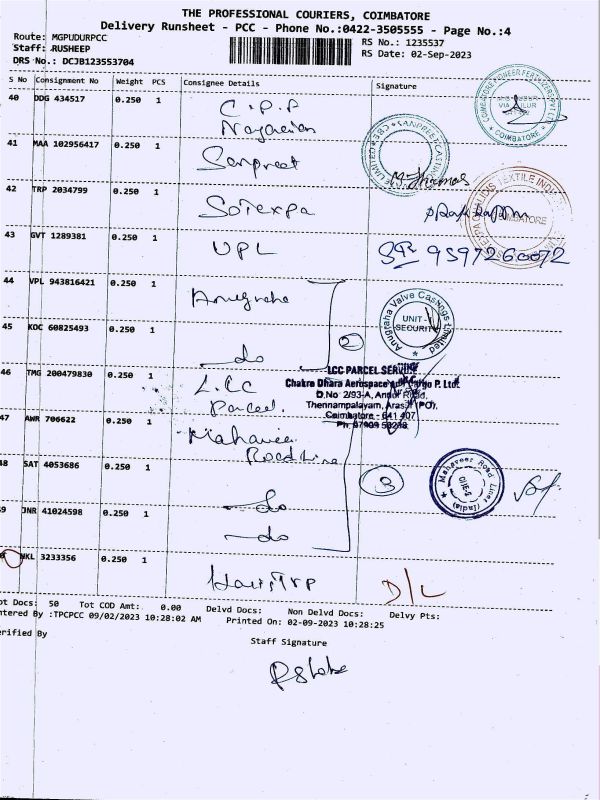 THE PROFESSIONAL COURIERS, COIMBATORE
Delivery Runsheet - PCC - Phone No.:0422-3505555 - Page No.:4
Route: MGPUDURPCC
RS No.: 1235537
Staff: RUSHEEP
RS Date: 02-Sep-2023
DRS No.: DCJB123553704
S No Consignment No Weight PCS Consignee Details Signature
40 DDG 434517 0.250 1 C.P.P
41 MAA 102956417 0.250 1 Sanpreet
M. Thomas
42 TRP 2034799 0.250 1 Soterpa
43 GVT 1289381 0.250 1 UPL
9597260072
44 VPL 943816421 0.250 1 Anugraha
Anugraha Valve Castings Limited
UNIT - 1
SECURITY
45 KOC 60825493 0.250 1 do
2
46 TMG 200479830 0.250 1 L.CC
Parcel.
LCC PARCEL SERVICE
Chakra Dhara Aerospace And Cargo P. Ltd.
D.No 2/93-A,
Thennampalayam, Arasur (PO).
Coimbatore - 641 407
47 AWR 706622 0.250 1 Mahaveer
Road Line
48 SAT 4053686 0.250 1
3
Mahaveer Road Lines (India)
49 JNR 41024598 0.250 1 do
do
NKL 3233356 0.250 1
D/L
ot Docs: 50 Tot COD Amt: 0.00 Delvd Docs: Non Delvd Docs: Delvy Pts:
ntered By :TPCPCC 09/02/2023 10:28:02 AM Printed On: 02-09-2023 10:28:25
erified By
Staff Signature